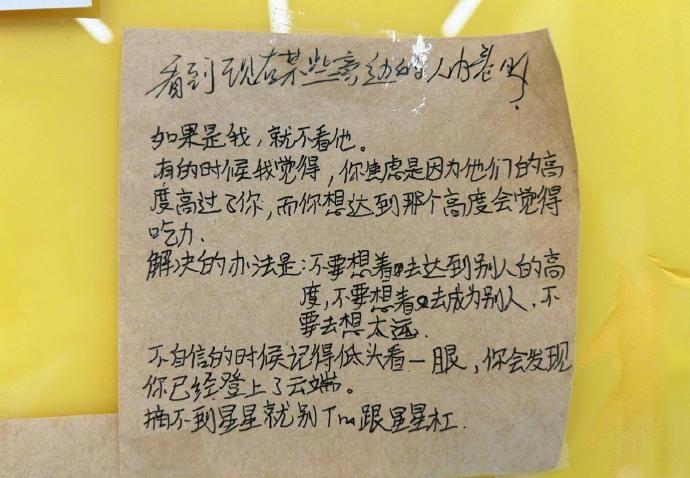 看到现在某些旁边的人内卷时?
如果是我，就不看他。
有的时候我觉得，你焦虑是因为他们的高
度高过了你，而你想达到那个高度会觉得
吃力.
解决的办法是:不要想着去达到别人的高
度，不要想着去成为别人.不
要去想太远.
不自信的时候记得低头看一眼，你会发现
你已经登上了云端。
摘不到星星就别Tm跟星星杠.